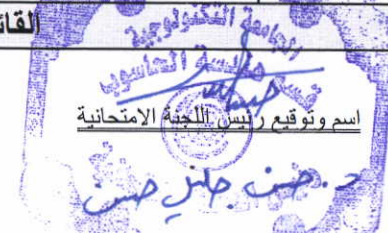 القائ
الجامعة التكنولوجية
قسم هندسة الحاسوب
اسم وتوقيع رئيس اللجنة الامتحانية
د. حسن جليل حسن